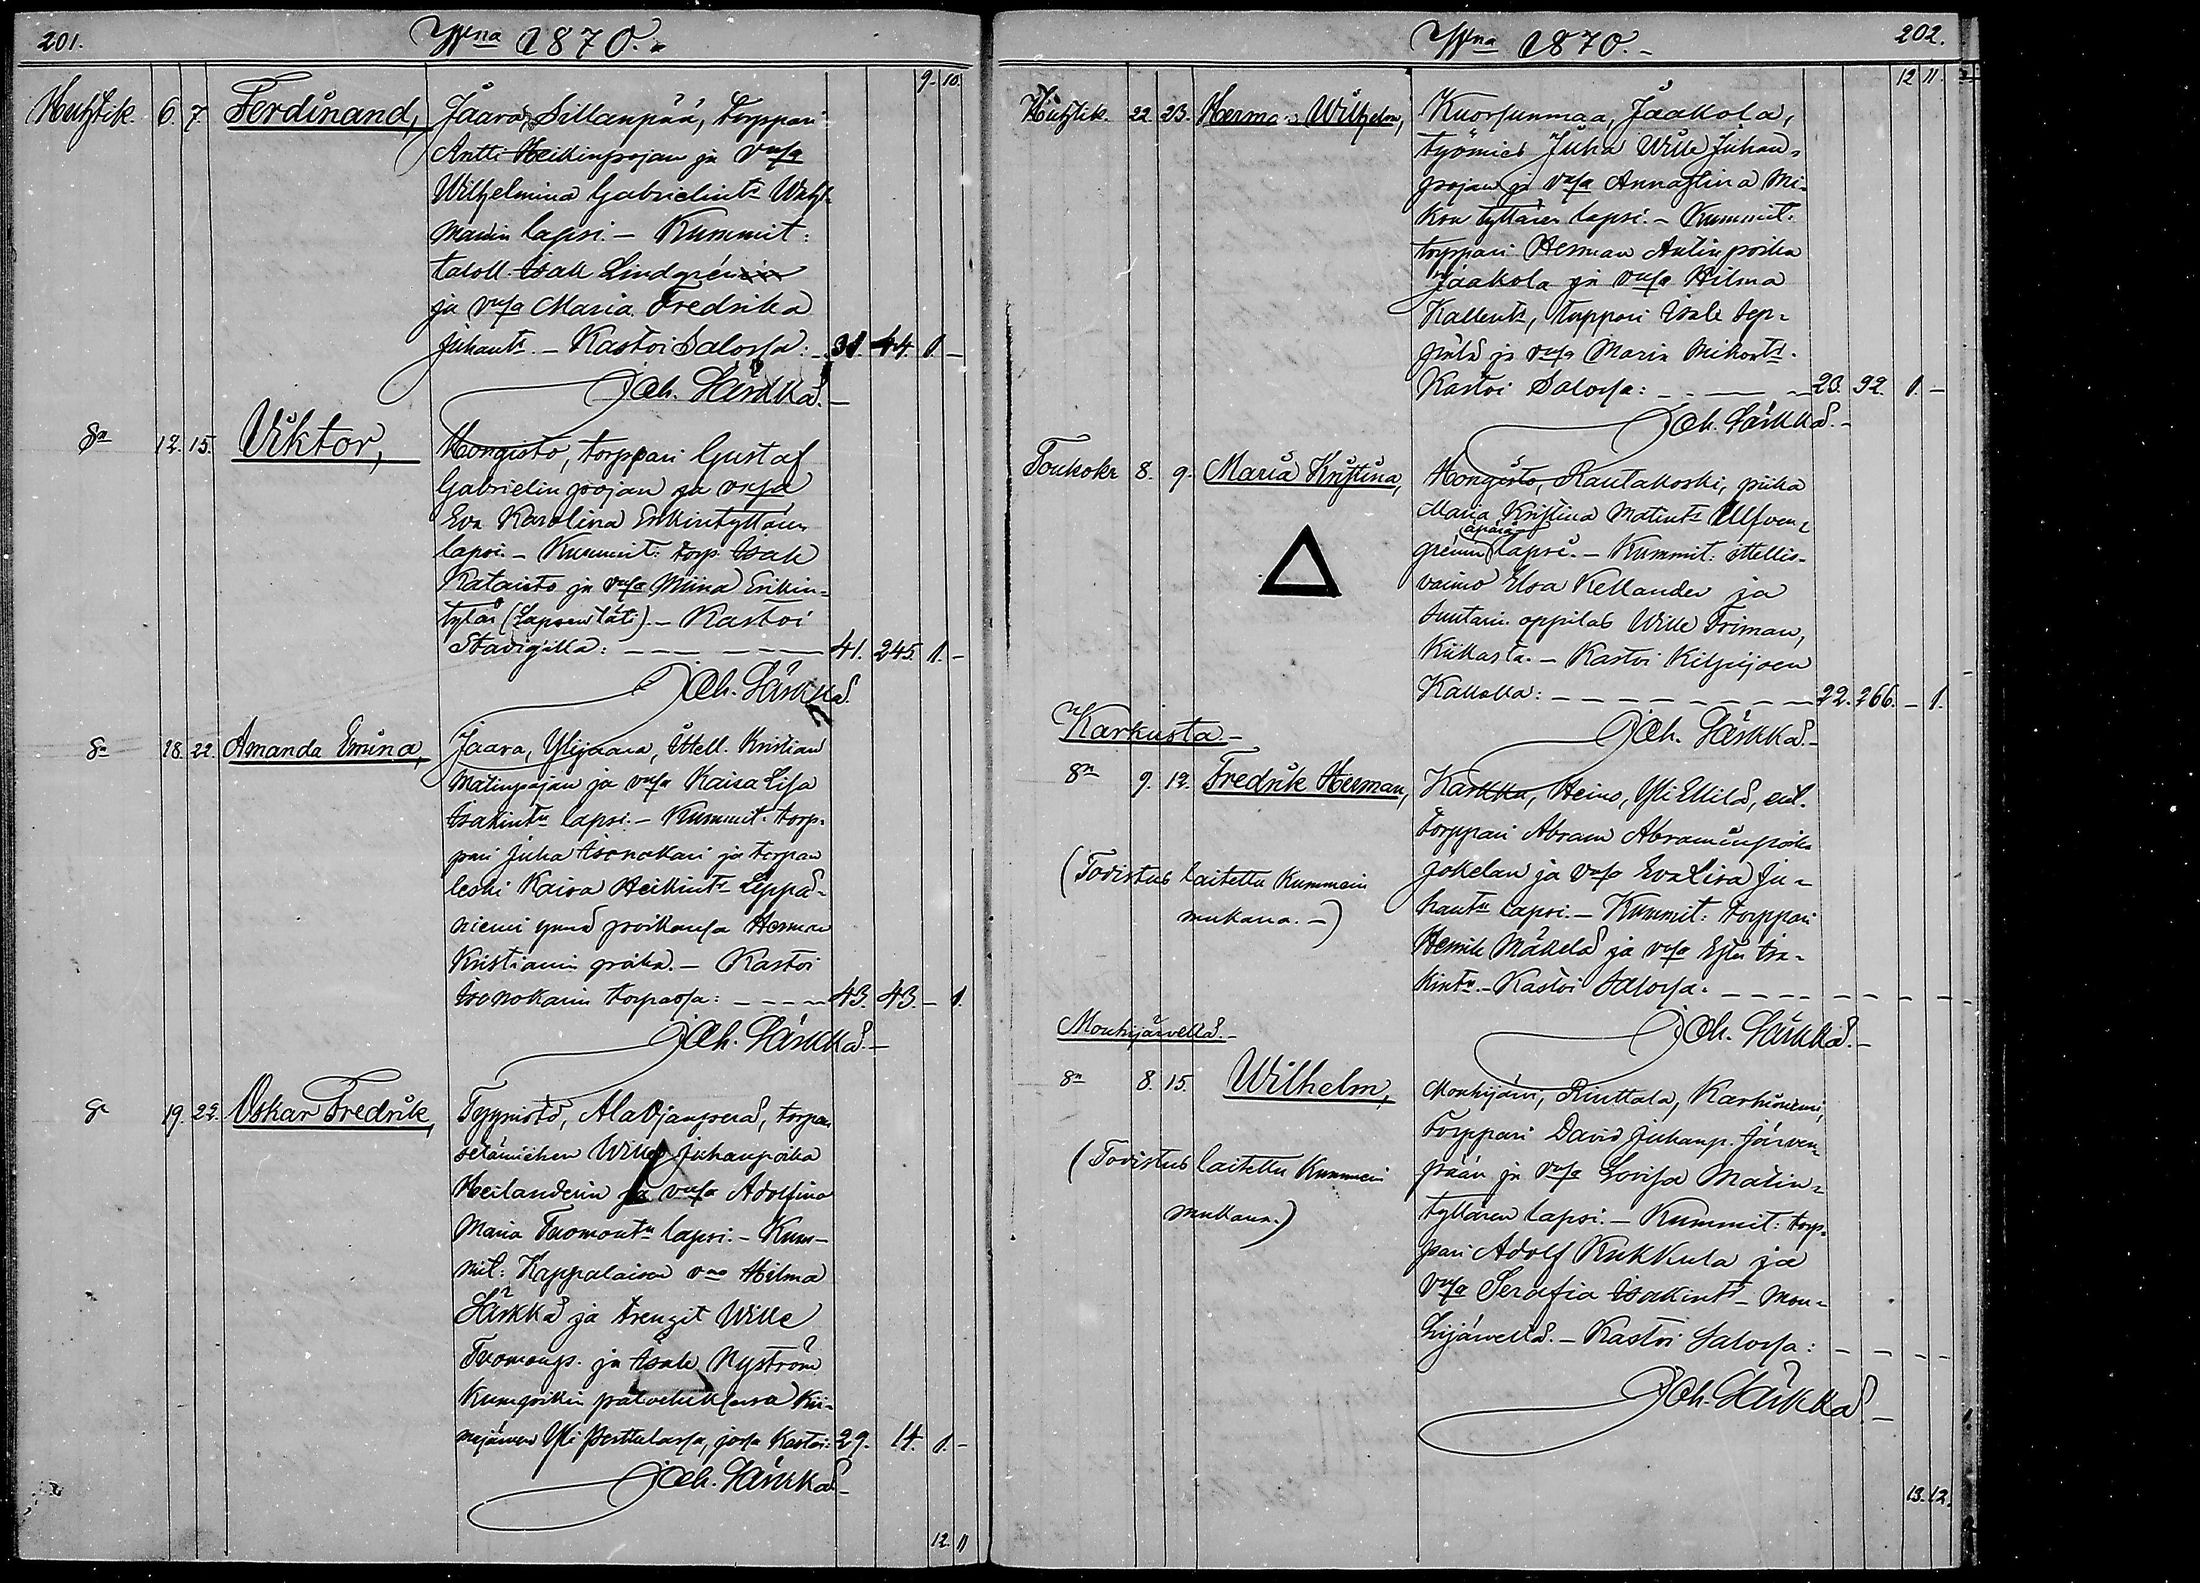 201.
Wna 1870.
9. 10.
Huhtik. 6. 7. Ferdinand, Jaara, Sillanpää, torppari
Antti Heikinpojan ja vmsa
Wilhelmina Gabrielints
lapsi. – Kummit:
taloll. Isak Lindgrénin
ja vmsa Maria Fredrika
Juhants. – Kastoi Salossa: 31. 44. 1. –
Joh. Särkkä. –
Dn 12. 15. Viktor, Hongisto, torppari Gustaf
Gabrielinpojan ja vmsa
Eva Karolina Erkintyttären
lapsi. – Kummit: torp. Isak
Kataisto ja vmsa Miina Erikin-
tytär (Lapsen täti). – Kastoi
41. 245. 1. –
Joh. Särkkä.
Dn 18. 22. Amanda Emina, Jaara, Ylijaara, Kristian
Matinpojan ja vmsa Kaisa Lisa
Isakints lapsi. – Kummit: torp-
pari Juha Isonokari ja torpan
leski Kaisa Heikints Leppä-
niemi ynnä poikansa Herman
Kristianin poika. – Kastoi
Isonokarin torpassa: 43. 43. – 1.
Joh. Särkkä. –
Dn 19. 22. Oskar Fredrik, torpan
Wille Juhanpoika
Heilanderin ja vmsa Adolfina
Maria Tuomonts lapsi. – Kum-
mit: Kappalaisen vmo Hilma
Särkkä ja trengit Wille
Tuomonp. ja Isak Nyström
Kumpikin palveluksensa Kii-
majärven Yli Perttulassa, jossa Kastoi: 29. 14. 1. –
Joh. Särkkä –
12. 11
Wna 1870. –
202.
12 11.
Huhtik. 22. 23. Herman Wilhelm, Kuorsunmaa, Jaakola,
työmies Juha Wille Juhan-
pojan ja vmsa Annastina Mi-
kon tyttären lapsi. – Kummit:
torppari Herman Antinpoika
Jaakola ja vmsa Hilma
Kallents, torppari Isak Sep-
pälä ja vmsa Maria Mikonts.
Kastoi Salossa: 23. 92. 1. –
Joh. Särkkä. –
Toukok 8. 9. Maria Kristina, Hongisto, Rautakoski, piika
Maria Kristina Matints Ulfven-
äpärä
grénin lapsi. – Kummit: itsellis-
vaimo Elsa Kellander ja
suutarin oppilas Wille Friman,
Kiikasta. – Kastoi Kilpijoen
Kalkolla: 22. 266. – 1.
Joh. Särkkä. –
Karkusta. –
Dn 9. 12. Fredrik Herman, Karkku, Heino, Yli Ellilä, ent.
torppari Abram Abraminpoika
Jokelan ja vmsa Eva Lisa Ju-
hants lapsi. – Kummit: torppari
Henrik Mäkelä ja vmsa Ester Isa-
kints. – Kastoi Salossa.
(Todistus laitettu Kummein
mukana. –)
Joh. Särkkä. –
Mouhijärvellä. –
Dn 8. 15. Wilhelm, Mouhijärvi, Riuttala, Karhiniemi,
torppari David Juhanp. Järven-
pään ja vmsa Lovisa Matin-
tyttären lapsi. – Kummit: torp-
pari Adolf Kukkula ja
vmsa Serafia Isakints – Mou-
hijärvellä. – Kastoi Salossa:
(Todistus laitettu Kummein
mukana.)
Joh. Särkkä –
13. 12.